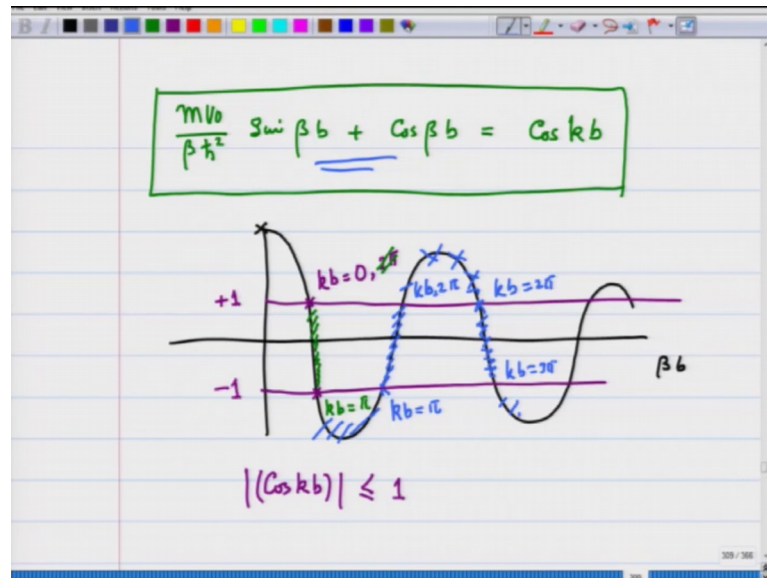 mV₀/βħ² Sin βb + Cos βb = Cos kb
kb=0, 2π
+1
kb,2π
kb=2π
βb
-1
kb=π
kb=π
kb=3π
|(Cos kb)| ≤ 1
309 / 366